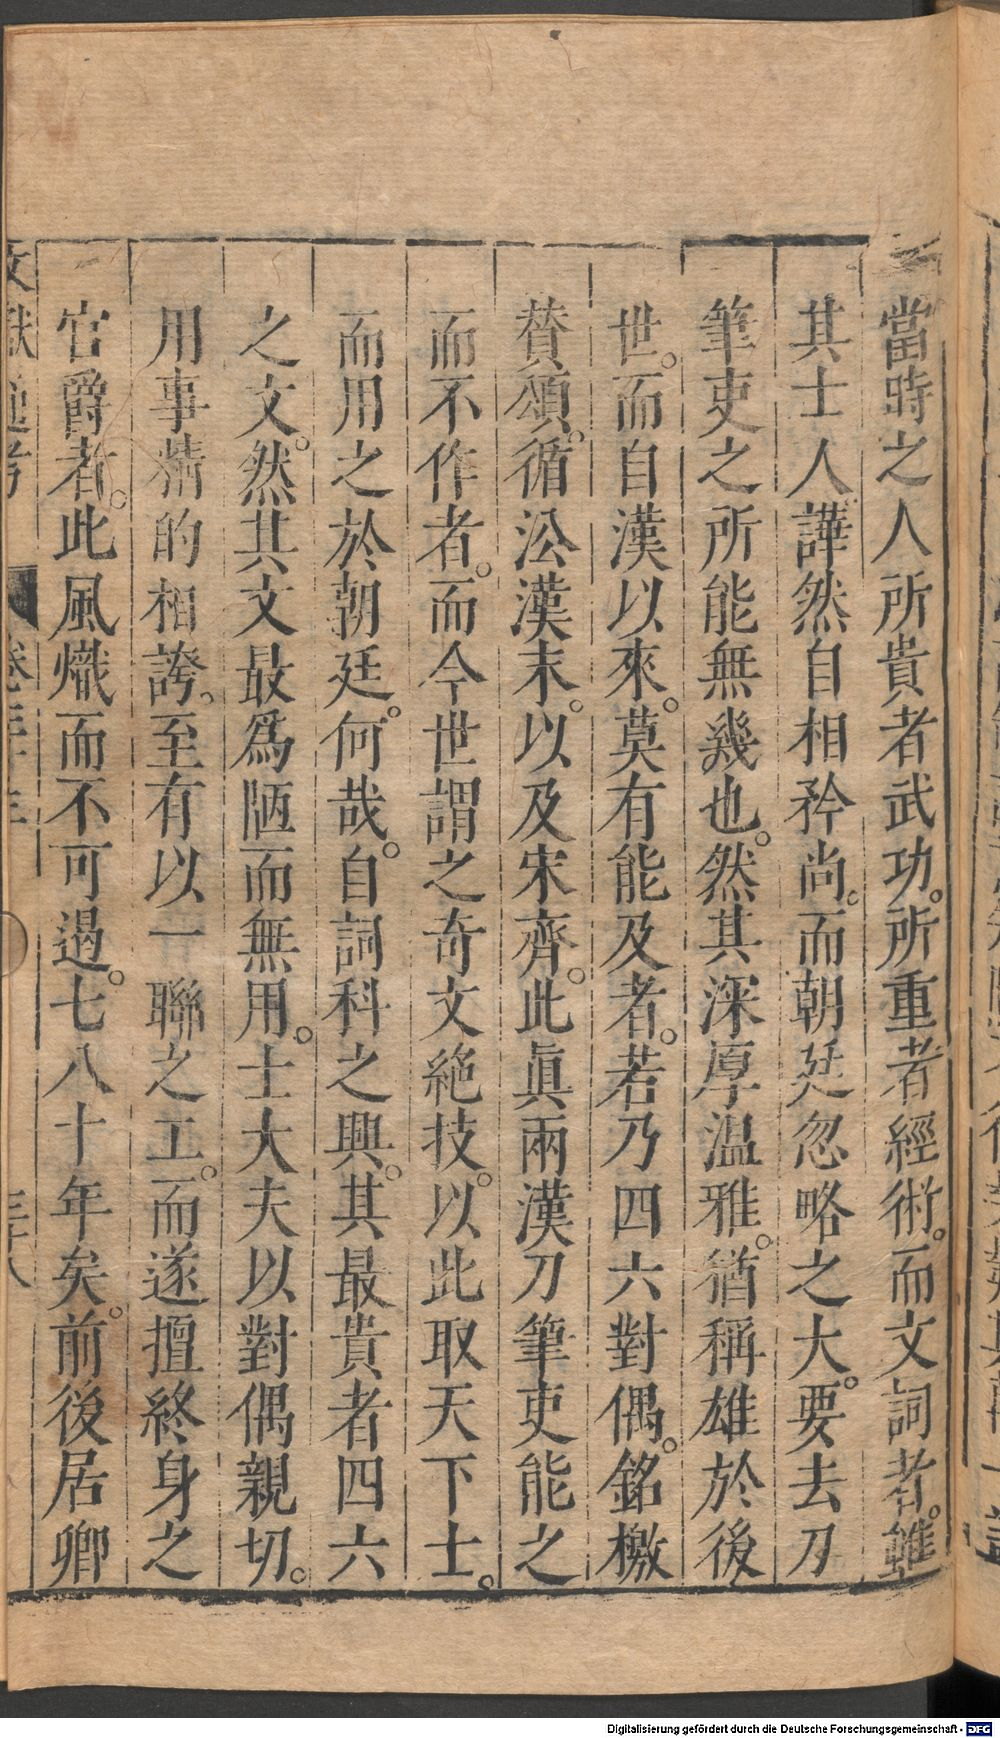 當時之人所貴者武功。所重者經術。而文詞者。雖
其士人譁然自相矜尚。而朝廷忽略之大。要去刀
筆吏之所能無幾也。然其深厚溫雅。猶稱雄於後
世。而自漢以來。莫有能及者。若乃四六對偶。銘檄
贊頌。循沿漢末。以及宋齊。此眞兩漢刀筆吏能之
而不作者。而今世謂之奇文絶技。以此取天下士。
而用之於朝廷。何哉。自詞科之興。其最貴者四六
之文。然其文最爲陋而無用。士大夫以對偶親切。
用事精的相誇。至有以一聯之工。而遂擅終身之
官爵者。此風熾而不可遏。七八十年矣。前後居卿
文獻通考 卷三十三 三十八
Digitalisierung gefördert durch die Deutsche Forschungsgemeinschaft - DFG